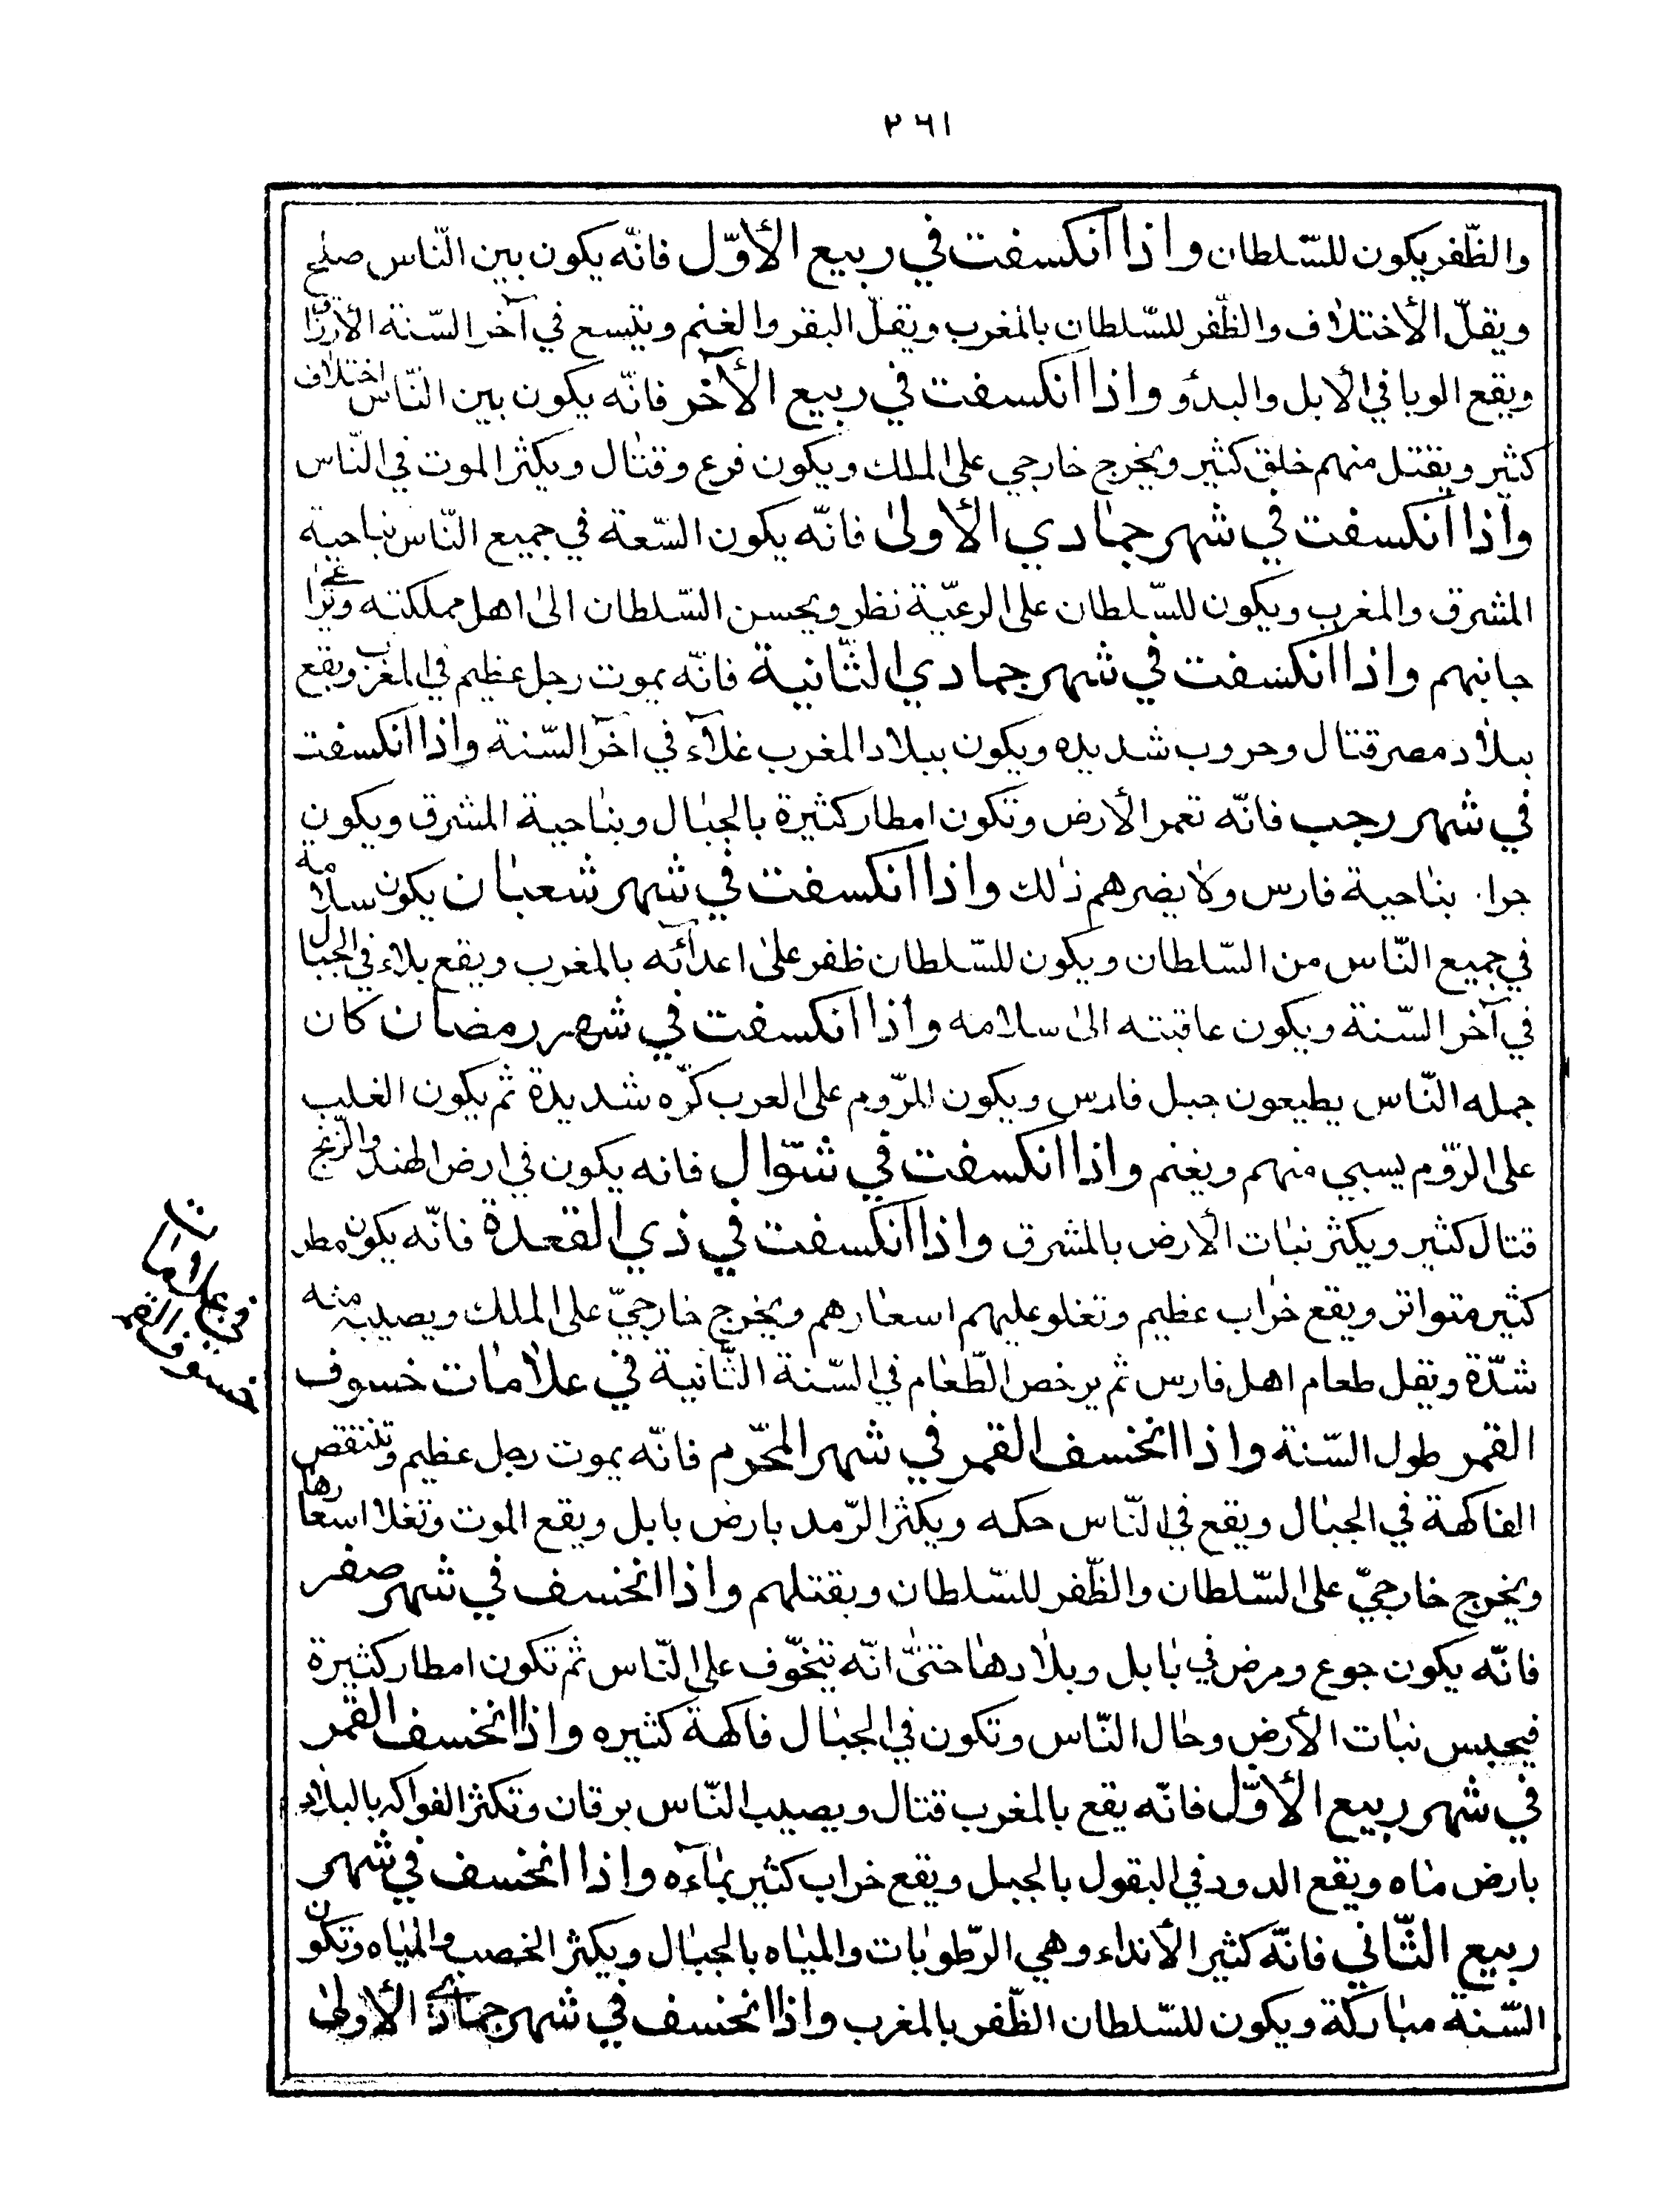 ٢٦١
والظّفر يكون للسّلطان واذا انكسفت في ربيع الأوّل فانّه يكون بين النّاس صلح
ويقلّ الأختلاف والظّفر للسّلطان بالمغرب ويقلّ البقر والغنم ويتّسع في آخر السّنة الأرزاق
ويقع الوبا في الابل والبدو واذا انكسفت في ربيع الآخر فانّه يكون بين النّاس اختلاف
كثير ويقتل منهم خلق كثير ويخرج خارجي على الملك ويكون فرع وقتال ويكثر الموت في النّاس
واذا انكسفت في شهر جمادي الأولى فانّه يكون السّعة في جميع النّاس بناحية
المشرق والمغرب ويكون للسّلطان على الرعيّة نظر ويحسن السّلطان الى اهل مملكته
جانبهم واذا انكسفت في شهر جمادي الثّانية فانّه يموت رجل عظيم في المغرب ويقع
ببلاد مصر قتال وحروب شديده ويكون ببلاد المغرب غلآء في آخر السّنة واذا انكسفت
في شهر رجب فانّه تعمر الأرض وتكون امطار كثيرة بالجبال وبناحية المشرق ويكون
جراد بناحية فارس ولا يضرهم ذلك واذا انكسفت في شهر شعبان يكون سلامة
في جميع النّاس من السّلطان ويكون للسّلطان ظفر على اعدآئه بالمغرب ويقع بلاء في الجبال
في آخر السّنة ويكون عاقبته الى سلامه واذا انكسفت في شهر رمضان كان
جمله النّاس يطيعون جبل فارس ويكون للرّوم على العرب كرّه شديدة ثم يكون الغلب
على الرّوم يسبي منهم ويغنم واذا انكسفت في شوّال فانه يكون في ارض الهند والزّنج
قتال كثير ويكثر نبات الأرض بالمشرق واذا انكسفت في ذي القعدة فانّه يكون مطر
كثير متواتر ويقع خراب عظيم وتغلو عليهم اسعارهم ويخرج خارجيّ على الملك ويصيبه منه
شدّة وتقل طعام اهل فارس ثم يرخص الطّعام في السّنة الثّانية في علامات خسوف
القمر طول السّنة واذا انخسف القمر في شهر المحّرم فانّه يموت رجل عظيم وتنتقص
الفاكهة في الجبال ويقع في النّاس حكه ويكثر الرّمد بارض بابل ويقع الموت وتغلا اسعارها
ويخرج خارجيّ على السّلطان والظّفر للسّلطان ويقتلهم واذا انخسف في شهر صفر
فانّه يكون جوع ومرض في بابل وبلادها حتىّ انّه يتخوّف على النّاس ثم تكون امطار كثيرة
فيحبس نبات الأرض وحال النّاس وتكون في الجبال فاكهة كثيره واذا انخسف القمر
في شهر ربيع الأوّل فانّه يقع بالمغرب قتال ويصيب النّاس يرقان وتكثر الفواكه بالبلاد
بارض ماه ويقع الدود في البقول بالجبل ويقع خراب كثير بمآءه واذا انخسف في شهر
ربيع الثّاني فانّه كثير الأنداء وهي الرّطوبات والمياه بالجبال ويكثر الخصب والمياه وتكون
السّنة مباركة ويكون للسّلطان الظّفر بالمغرب واذا انخسف في شهر جمادي الأولى
في علامات
خسوف القمر